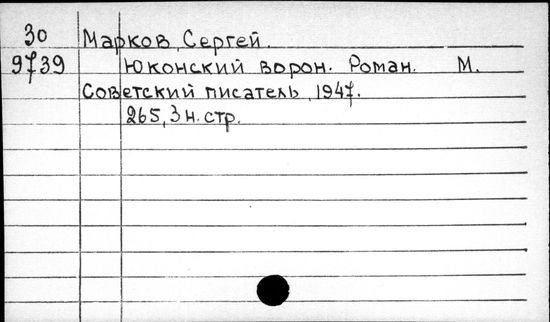 30 Марков, Сергей.
9739 Юконский ворон. Роман. М.
Советский писатель, 1947.
265, 3 н. стр.